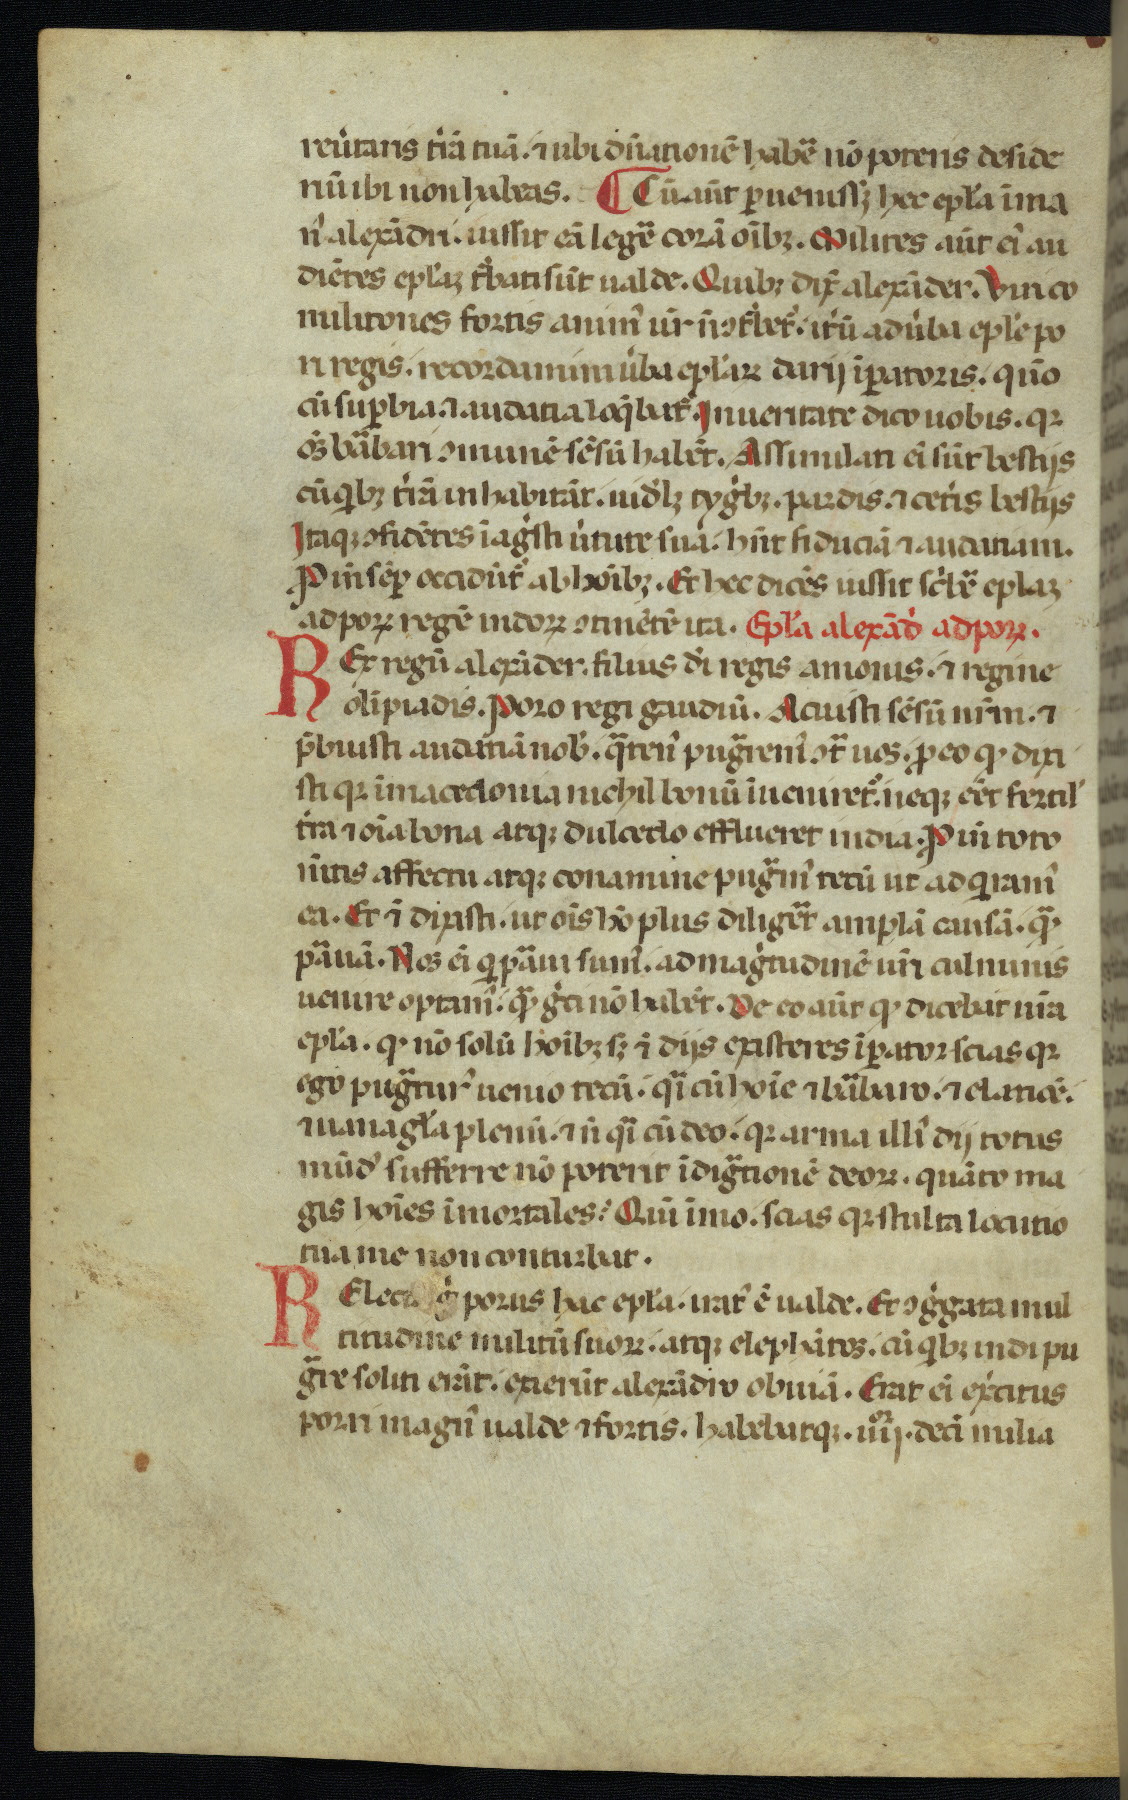 reũtaris t̃rã tuã. ⁊ ubi dñationẽ hab̃e nõ poteris deside
riũ ibi non habeas. ¶ Cũ aũt ꝑuenissꝫ hec epl̃a ĩ ma
nꝰ alexãdri. iussit eã leg̃e corã oĩbꝫ. Milites aũt eiꝰ au
diẽtes epl̃aꝫ t̃bati sũt ualde. Quibꝫ dix̃ alexãder. Viri co
militones fortis animꝰ ur̃ ñ ꝯt̃betr̃. it̃ũ ad ũba epl̃e po
ri regis. recordamini ũba epl̃arꝝ darij ĩꝑatoris. quõ
cũ suꝑbia. ⁊ audatia loq̃batr̃. In ueritate dico uobis. qꝛ
oẽs bãbari ꝯmunẽ sẽsũ habẽt. Assimilati eĩ sũt bestijs
cũ qͥbꝫ t̃rã inhabitãt. uid̃lꝫ tyg̃bꝫ. pardis. ⁊ cet̃is bestijs
Itaqꝫ ꝯfidẽtes ĩ ag̃sti ũtute sua. hñt fiduciã ⁊ audatiam.
P̃ĩ sẽꝑ occidũtr̃ ab hoĩbꝫ. Et hec dicẽs iussit sc̃b̃e epl̃aꝫ
ad porꝝ regẽ indorꝝ ꝯtinẽtẽ ita. Epl̃a alexãdͥ ad porꝝ.
REx regũ alexãder. filius dei regis amonis. ⁊ regine
olĩpiadis. Poro regi gaudiũ. Acuisti sẽsũ nr̃m. ⁊
p̃buisti audatiã nob̃. q̃tenꝰ pug̃remꝰ ꝯt̃ uos. ꝓ eo ꝙ dixi
sti qꝛ ĩ macedonia nichil bonũ ĩueniretr̃. neqꝫ eẽt fertil̃
t̃ra ⁊ oĩa bona atqꝫ dulcedo efflueret india. P̃ĩ toto
mẽtis affectu atqꝫ conamine pug̃mꝰ tecũ ut adqͥramꝰ
ea. Et ĩ dixisti. ut oĩs hõ plus diliger̃et amplã causã. q̃ꝫ
pãuã. Nos eĩ qͥ pãui sumꝰ. ad mag̃tudinẽ ur̃i culminis
uenire optamꝰ. q̃ꝫ g̃ci nõ habẽt. De eo aũt ꝙ dicebat ur̃a
epl̃a. ꝙ nõ solũ hoĩbꝫ sꝫ ĩ dijs existeres ĩꝑator scias qꝛ
ego pug̃turꝰ uenio tecũ. q̃i cũ hoĩe ⁊ bãbaro. ⁊ elatiõe.
⁊ uana gl̃a plenũ. ⁊ ñ q̃i cũ deo. qꝛ arma illiꝰ dij totus
mũdꝰ sufferre nõ poterit ĩdig̃tionẽ deorꝝ. quãto ma
gis hoĩes ĩmortales? Quĩ imo. scias qꝛ stulta locutio
tua me non conturbat.
RElecta g̃ porus hac epl̃a. iratꝰ ẽ ualde. Et ꝯg̃gata mul
titudine militũ suorꝝ. atqꝫ elephãtos. cũ qͥbꝫ indi pu
g̃re soliti erãt. exierũt alexãdro obuiã. Erat eĩ ex̃citus
porri magnꝰ ualde ⁊ fortis. habebatqꝫ. iiij. decĩ milia